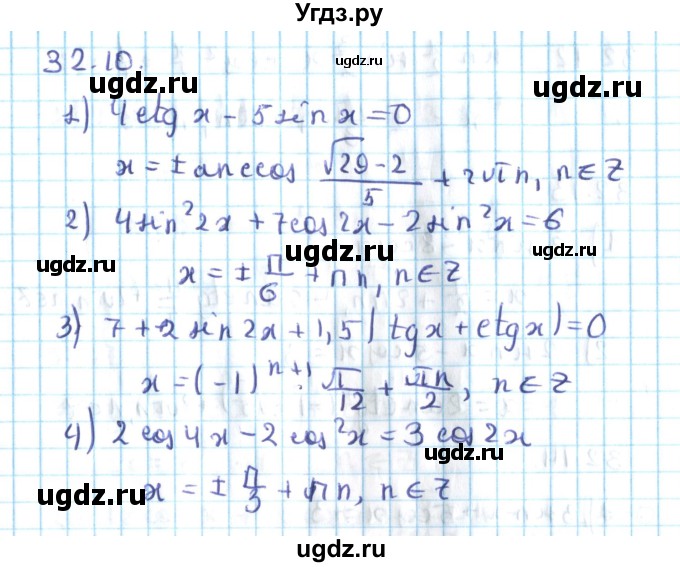 Угдз.ру
32.10.
ugdz.ru ugdz.ru ugdz.ru
1) 4ctg x - 5 sin x = 0
x = ± arccos (√29 - 2)/5 + 2πn, n ∈ Z
ugdz.ru
2) 4 sin²2x + 7cos 2x - 2 sin²x = 6
ugdz.ru ugdz.ru ugdz.ru
x = ± π/6 + πn, n ∈ Z
3) 7 + 2 sin 2x + 1,5(tgx + ctgx) = 0
x = (-1)ⁿ⁺¹ · π/12 + πn/2, n ∈ Z
4) 2 cos 4x - 2 cos²x = 3 cos 2x
ugdz.ru
x = ± π/3 + πn, n ∈ Z
ugdz.ru ugdz.ru
ugdz.ru